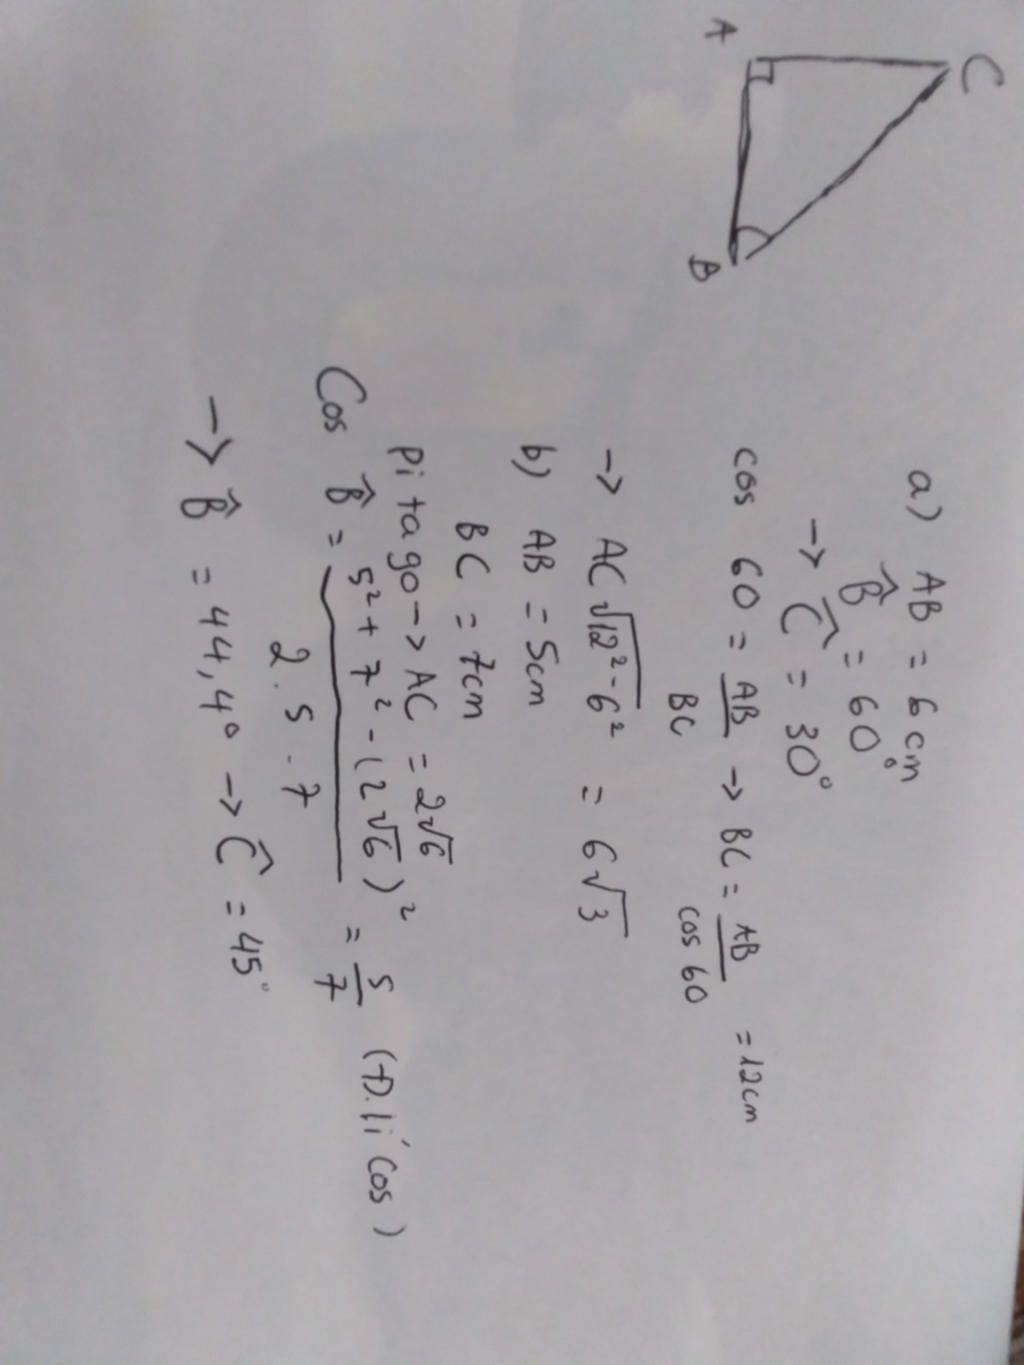 A
C
B
a) AB = 6cm
B̂ = 60°
→ Ĉ = 30°
cos 60 = AB/BC → BC = AB/cos 60 = 12cm
→ AC √(12² - 6²) = 6√3
b) AB = 5cm
BC = 7cm
Pitago → AC = 2√6
Cos B̂ = (5² + 7² - (2√6)²)/(2.5.7) = 5/7 (Đ.lí cos)
→ B̂ = 44,4° → Ĉ = 45°